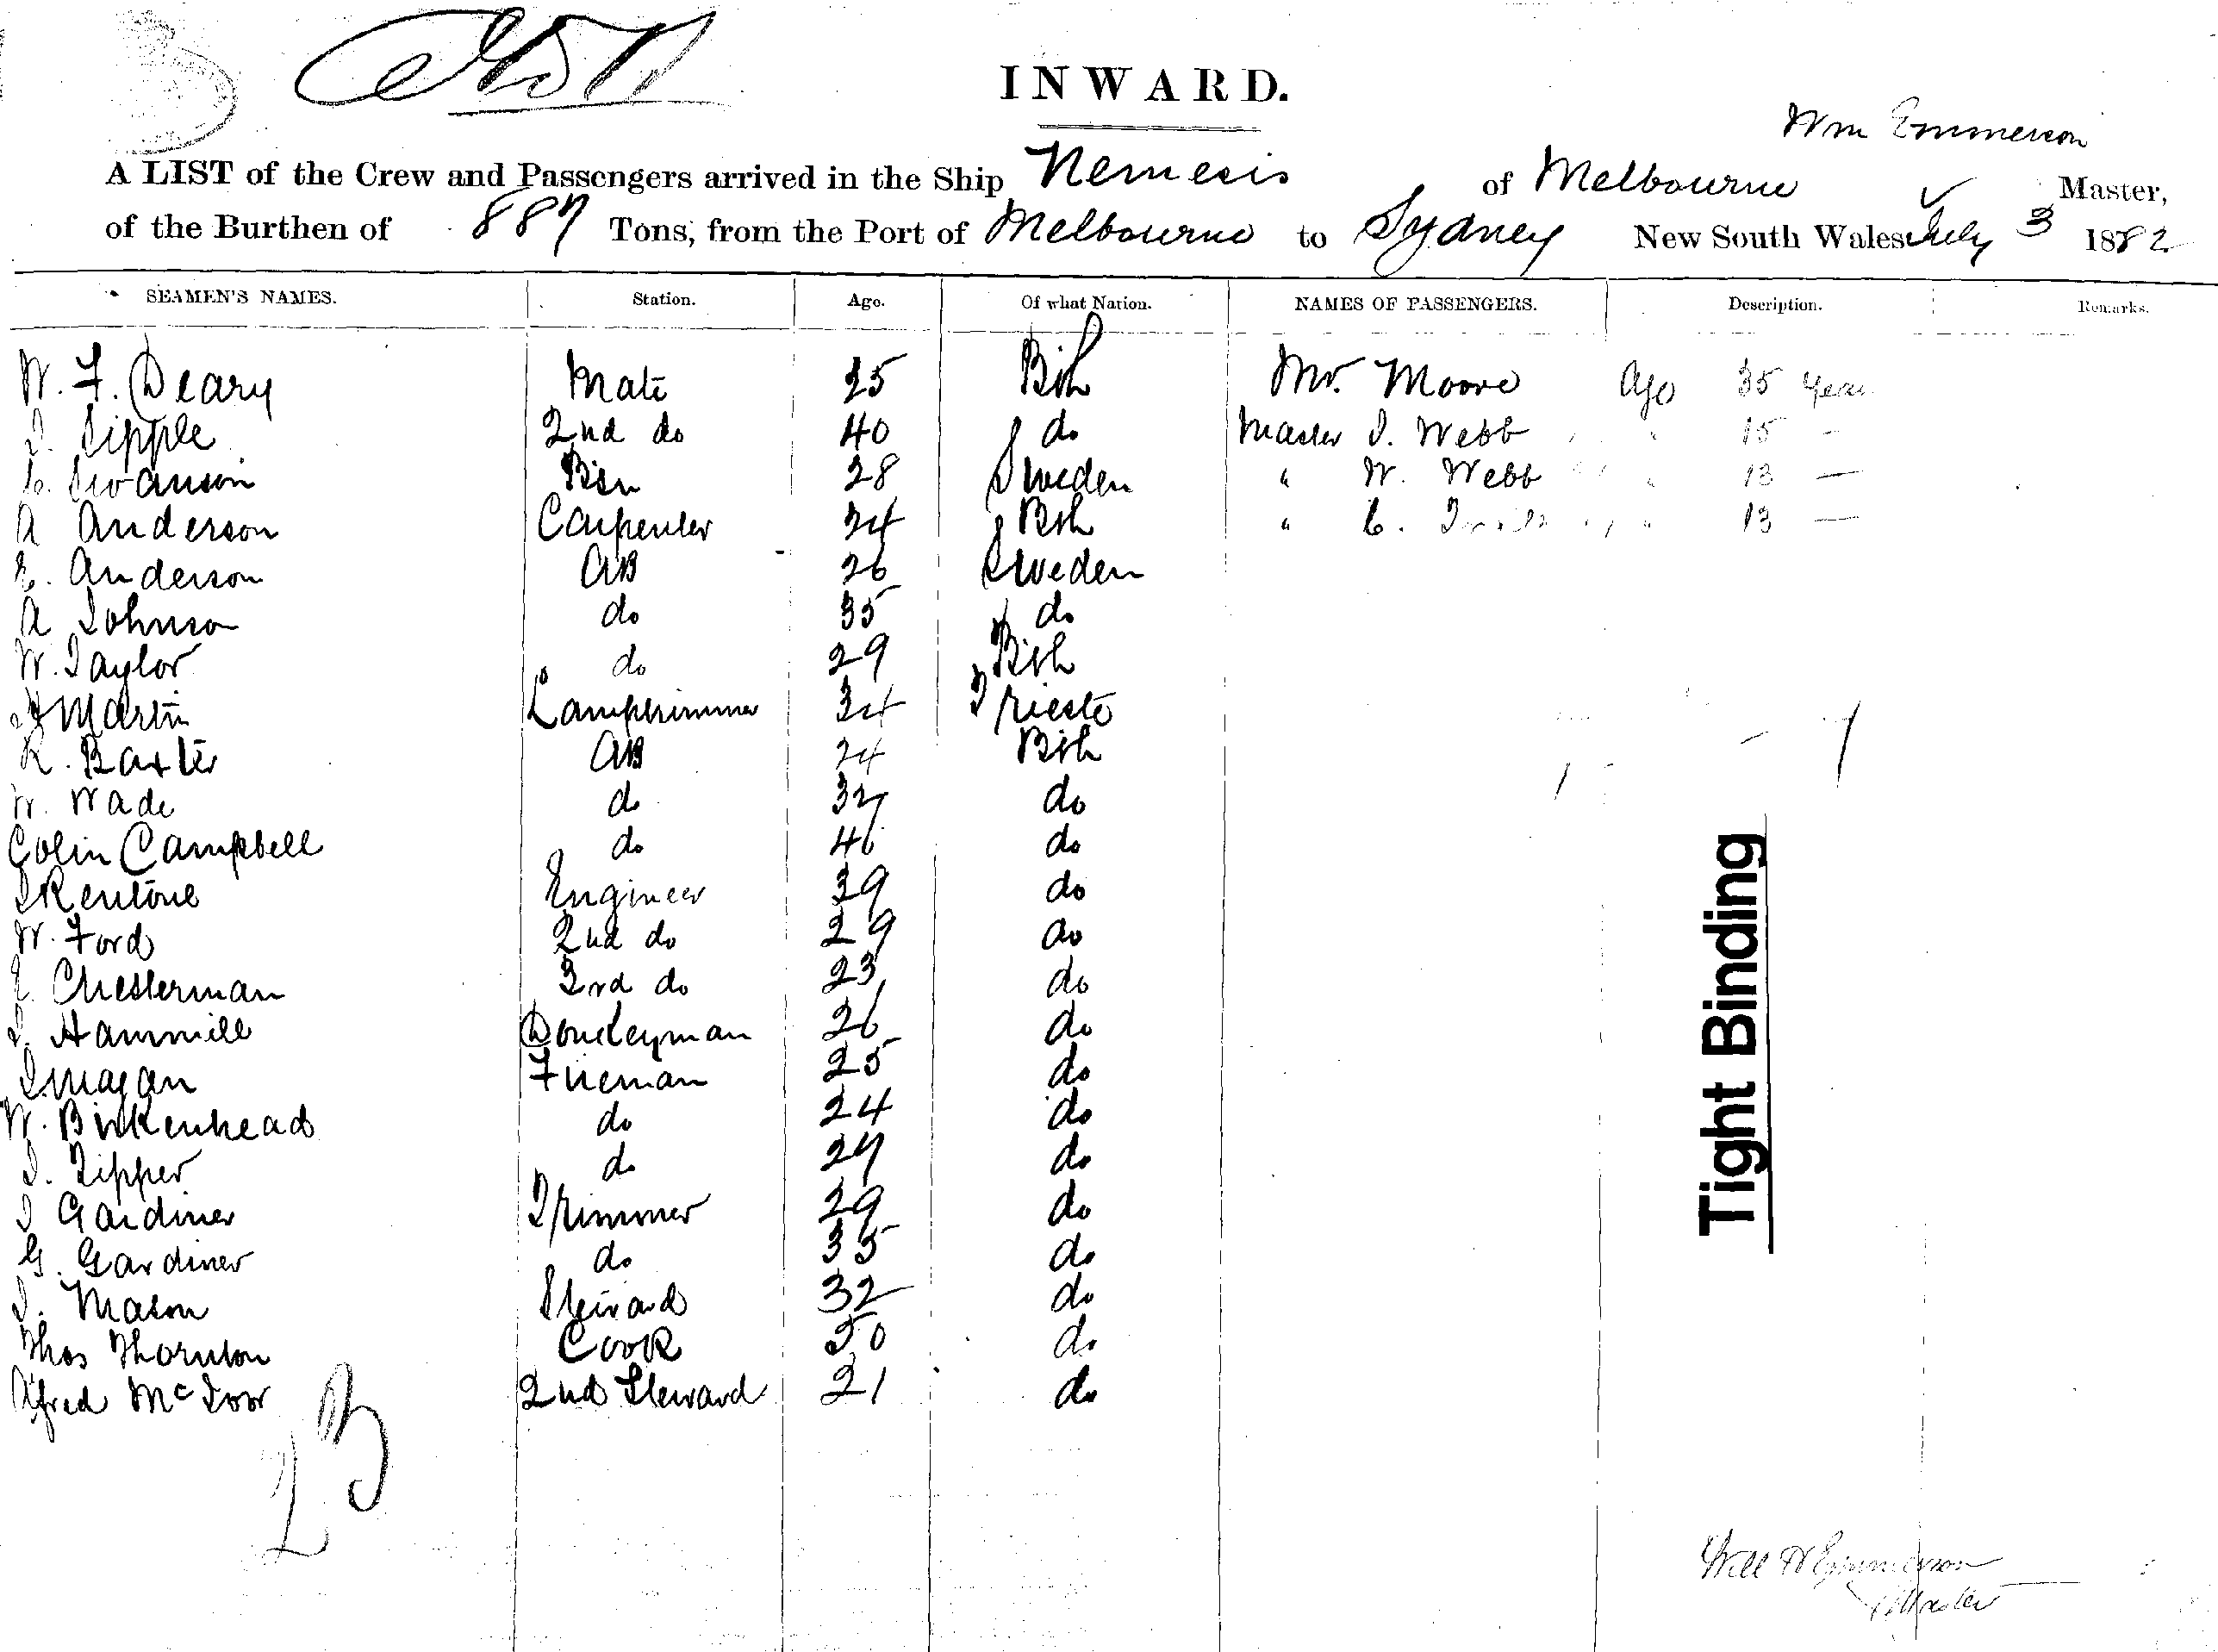 INWARD.
Wm Emmerson
A LIST of the Crew and Passengers arrived in the Ship Nemesis of Melbourne Master,
of the Burthen of 887 Tons, from the Port of Melbourne to Sydney New South Wales July 3 1882
SEAMEN'S NAMES. Station. Age. Of what Nation. NAMES OF PASSENGERS. Description. Remarks.
W. F. Deary Mate 25 Bsh Mr. Moore Age 35 Years
Sipple 2nd do 40 do Master J. Webb " 15 —
Swanson Bsn 28 Sweden " W. Webb " 13 —
A Anderson Carpenter 24 Bsh " C. " 13 —
Anderson AB 26 Sweden
A Johnson do 35 do
W. Taylor do 29 Bsh
Martin Lamptrimmer 34 Trieste
R. Baxter AB 24 Bsh
W. Wade do 37 do
Colin Campbell do 46 do
J Rentone Engineer 39 do
W. Ford 2nd do 29 do
Chesterman 3rd do 23 do
Hammill Donkeyman 26 do
Fireman 25 do
W. Birkenhead do 24 do
J. Tipper do 27 do
J Gardiner Trimmer 29 do
G. Gardiner do 35 do
J. Mason Steward 32 do
Thos Thornton Cook 50 do
Alfred 2nd Steward 21 do
23
Tight Binding
Will H Emmerson
Master